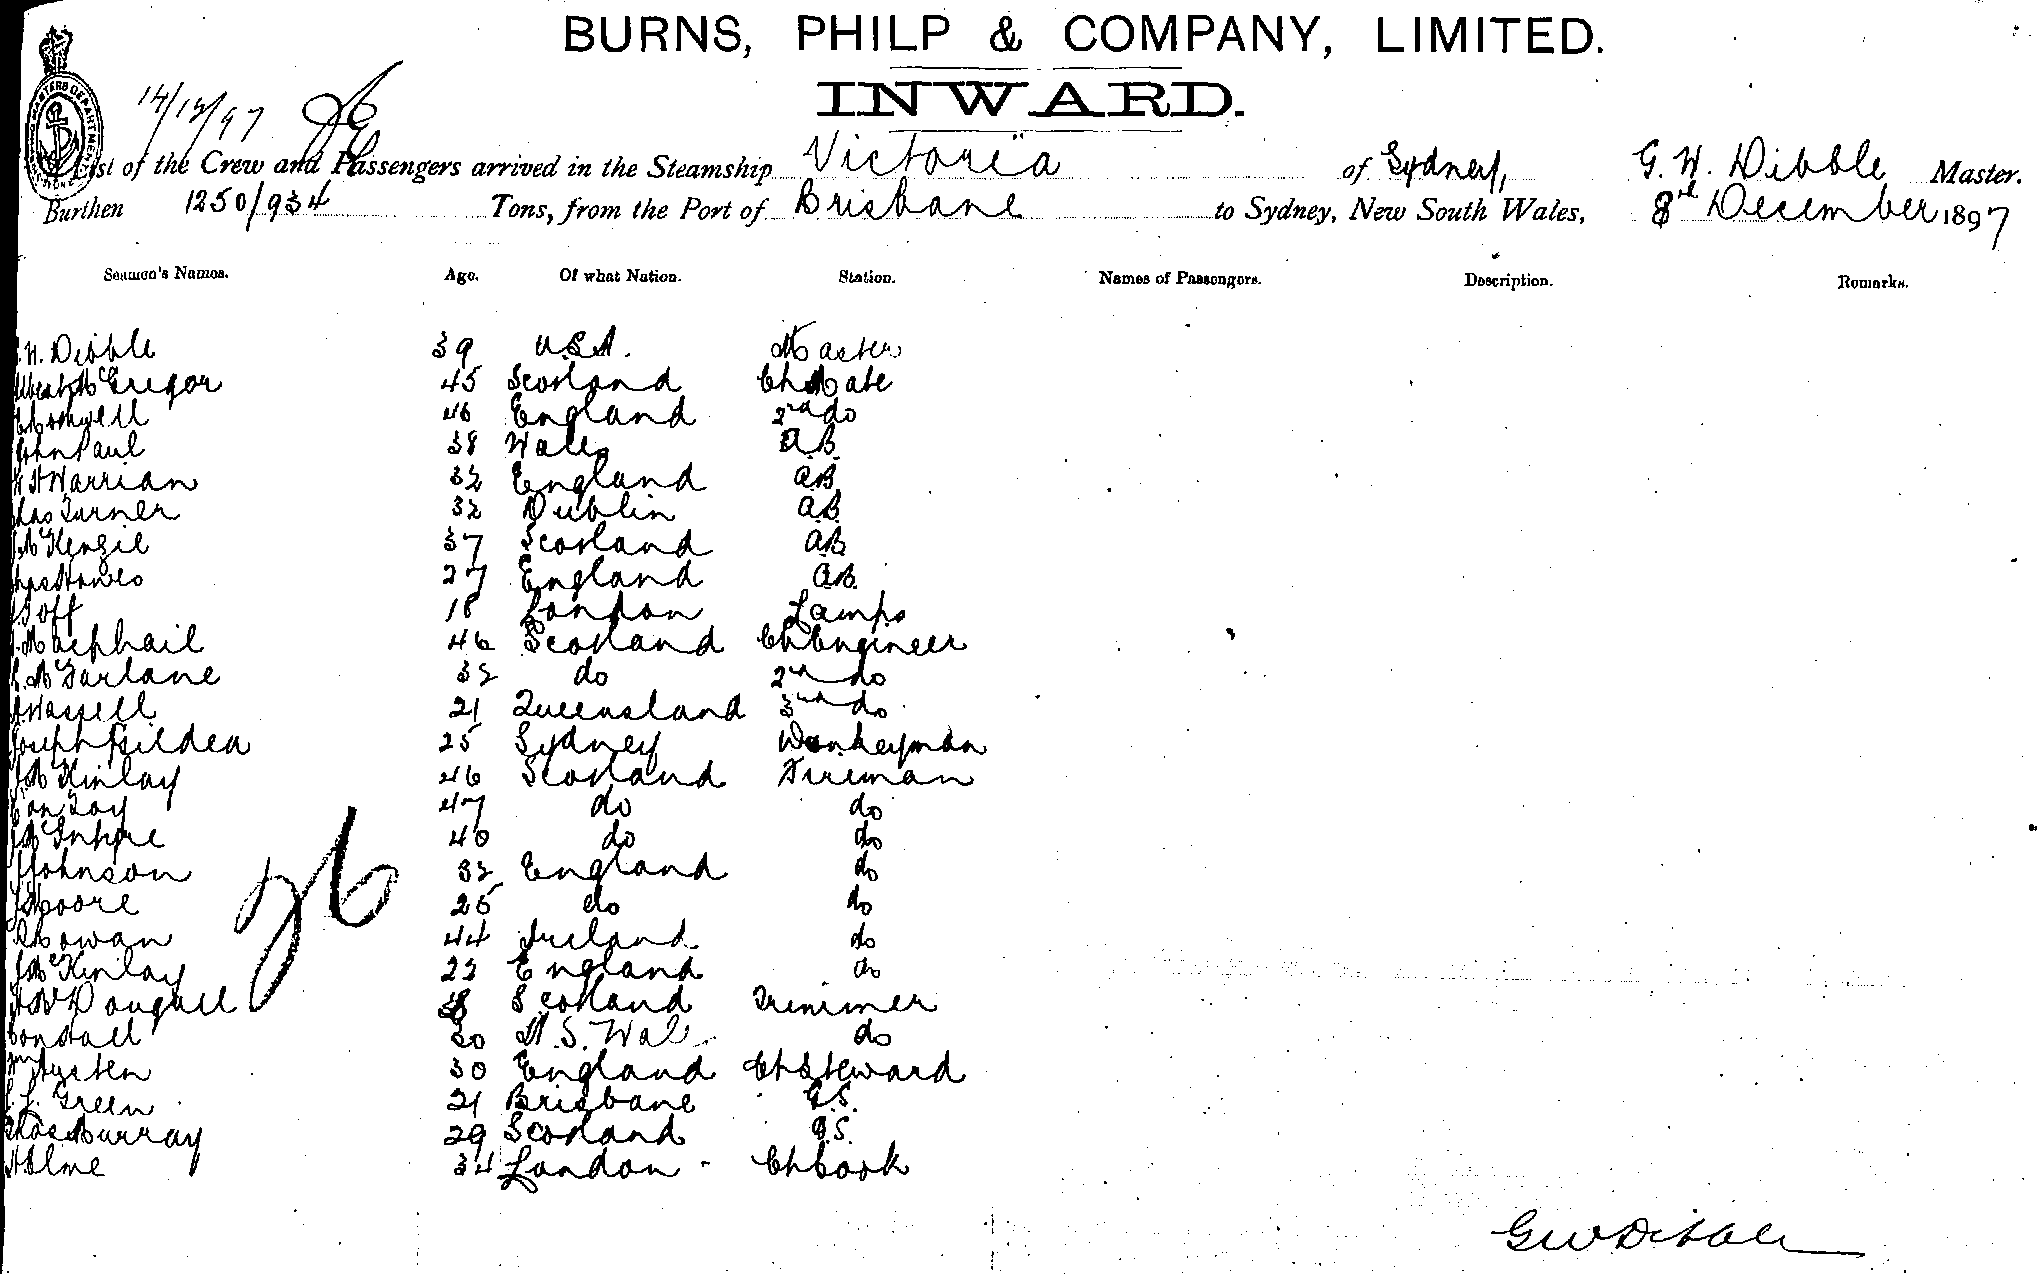 BURNS, PHILP & COMPANY, LIMITED.
INWARD.
14/12/97
List of the Crew and Passengers arrived in the Steamship Victoria of Sydney, G. W. Dibble Master.
Burthen 1250/934 Tons, from the Port of Brisbane to Sydney, New South Wales, 8 December 1897
Seamen's Names. Age. Of what Nation. Station. Names of Passengers. Description. Remarks.
W. Dibble 39 U.S.A. Master
McGregor 45 Scotland Ch Mate
46 England 2nd do
John Paul 38 Wales A.B.
Warrian 32 England A.B.
Chas Turner 32 Dublin A.B.
McKenzie 37 Scotland A.B.
27 England A.B.
Goff 18 London Lamps
Macphail 46 Scotland Ch Engineer
McFarlane 32 do 2nd do
Wassell 21 Queensland 3rd do
Joseph Gildea 25 Sydney Donkeyman
McKinlay 46 Scotland Fireman
47 do do
McIntyre 40 do do
Johnson 32 England do
Moore 25 do do
Cowan 44 Ireland do
McKinlay 22 England do
McDougall 38 Scotland Trimmer
20 N.S. Wal do
Austen 30 England Ch Steward
Green 21 Brisbane G.S.
Chas Murray 29 Scotland G.S.
Holme 34 London - Ch Cook
GW Dibble